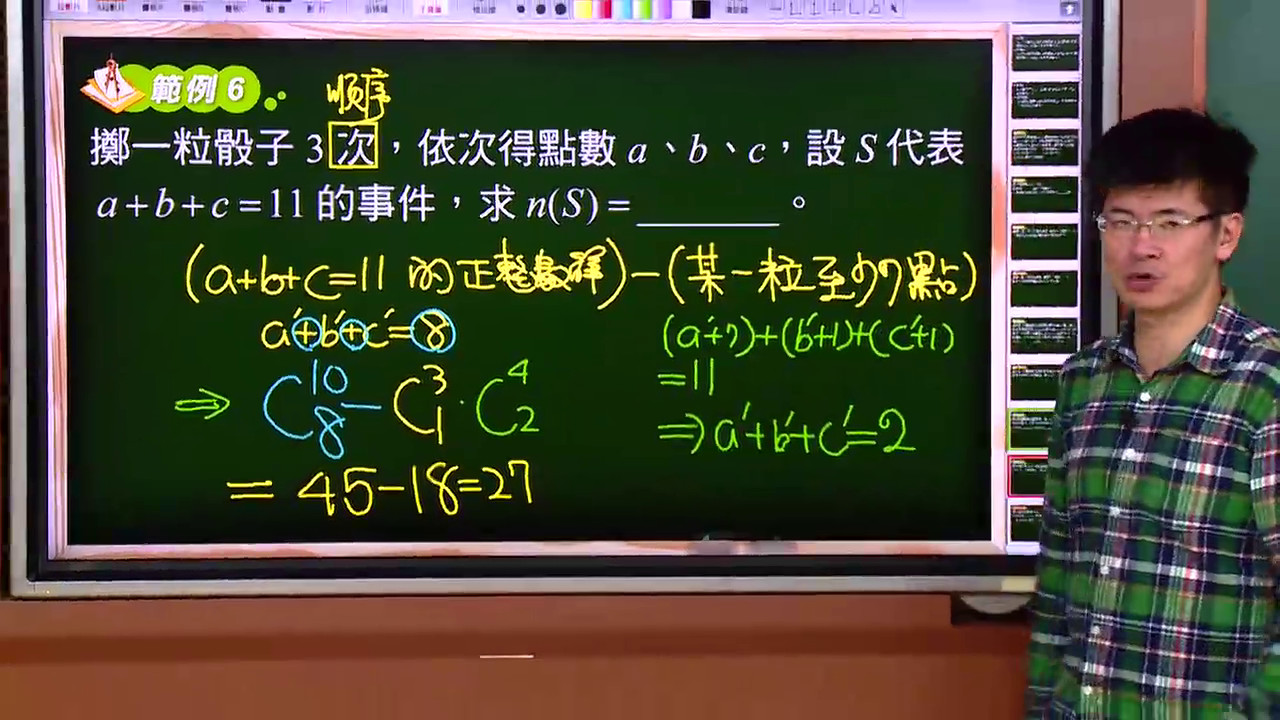 範例 6
順序
擲一粒骰子 3 次,依次得點數 a、b、c,設 S 代表
a+b+c=11 的事件,求 n(S)=________。
(a+b+c=11 的正整數解)-(某一粒至少7點)
a'+b'+c'=8
(a'+7)+(b'+1)+(c'+1)
=11
⇒ C^10_8 - C^3_1 · C^4_2
⇒ a'+b'+c'=2
= 45-18=27